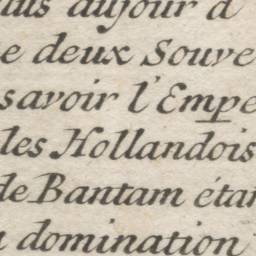 aujour d
e deux Souve
savoir l'Empe
les Hollandois
de Bantam étan
domination